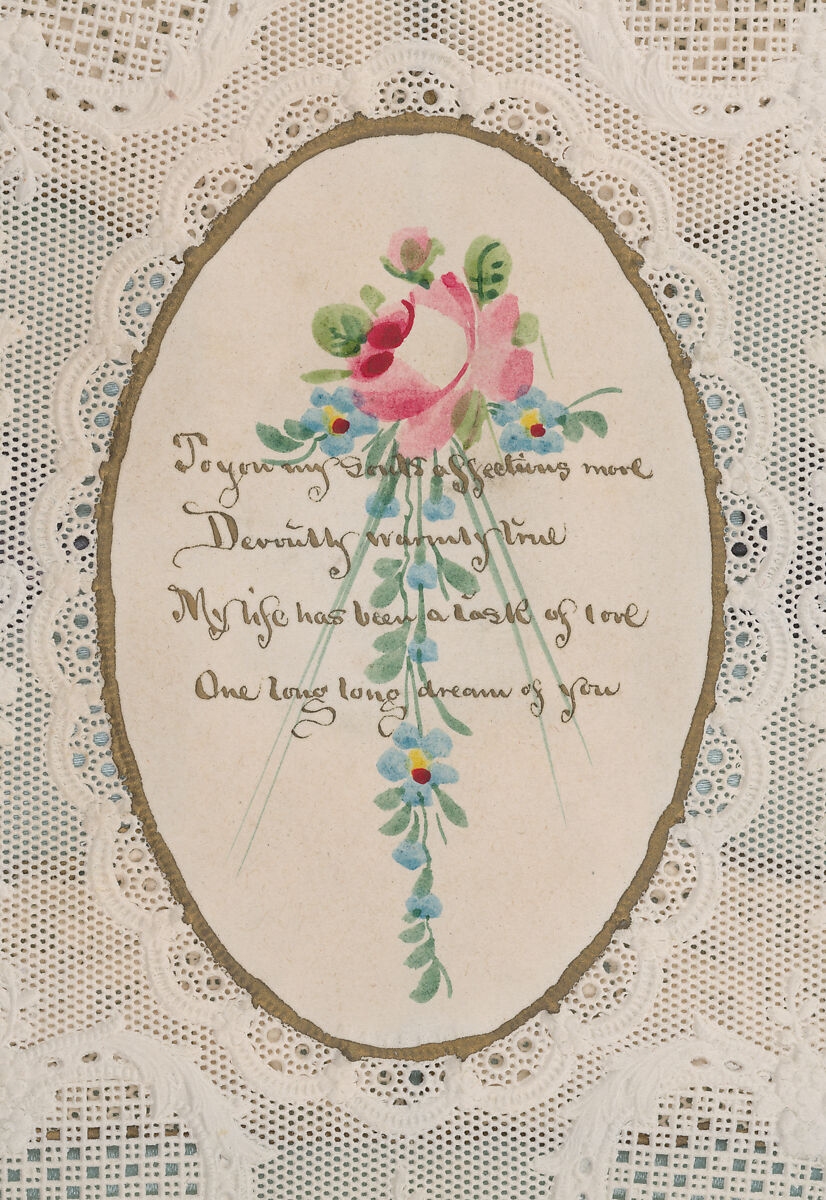 To you my souls affections move
Devoutly warmly true
My life has been a task of love
One long long dream of you